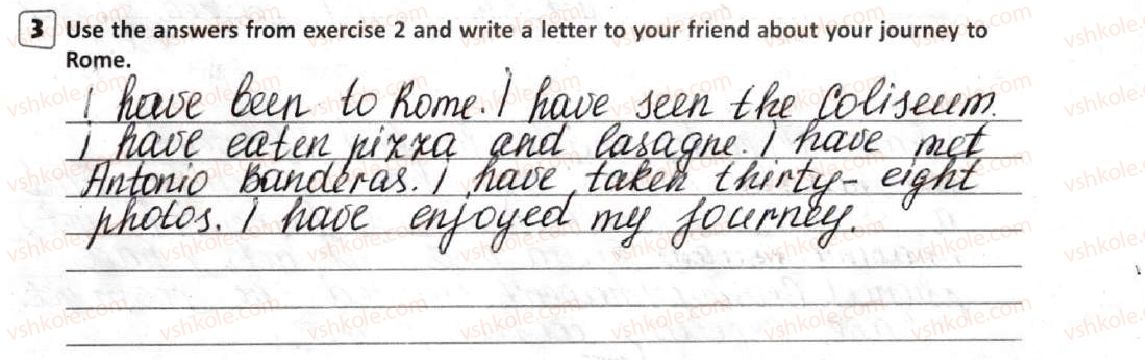 3 Use the answers from exercise 2 and write a letter to your friend about your journey to
Rome.
I have been to Rome. I have seen the Coliseum.
I have eaten pizza and lasagne. I have met
Antonio Banderas. I have taken thirty-eight
photos. I have enjoyed my journey.